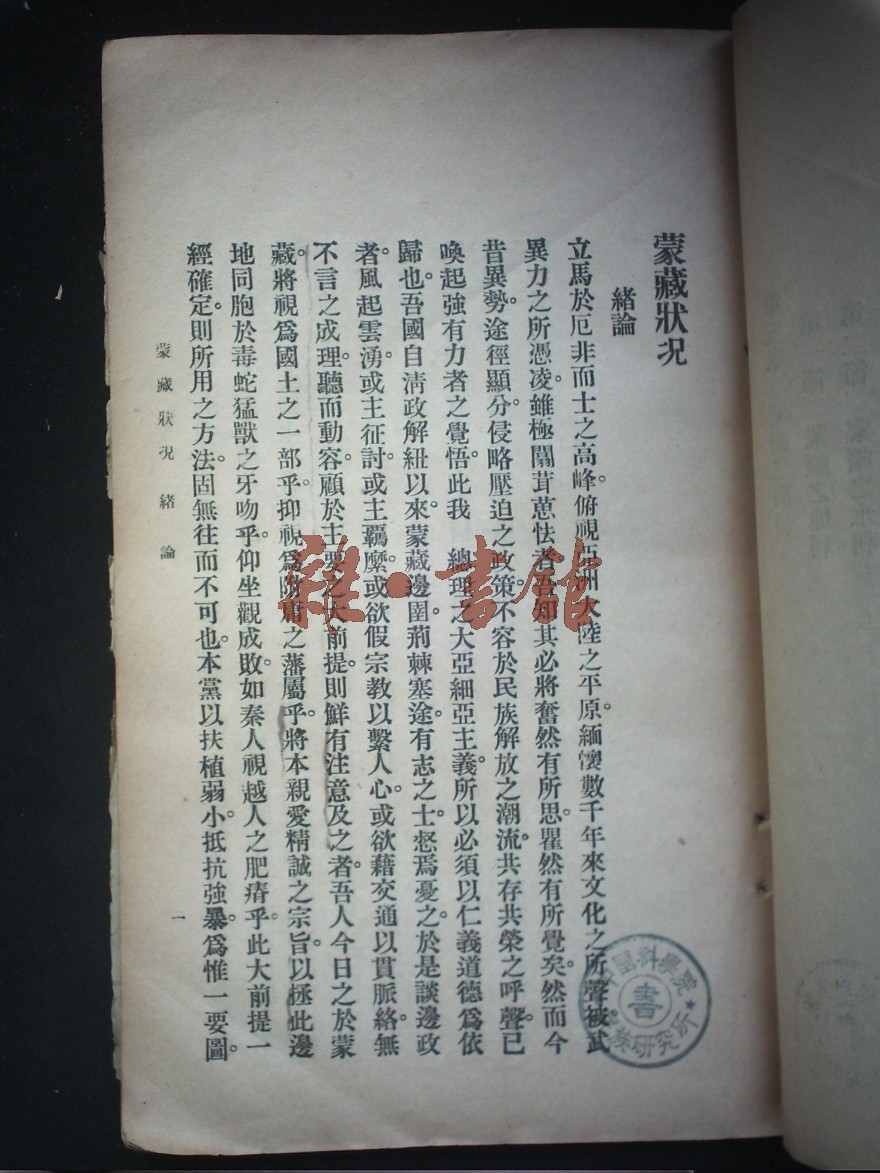 蒙藏狀況
緒論
立馬於厄非而士之高峰。俯視亞洲大陸之平原。緬懷數千年來文化之所聲被。武
異力之所憑凌。雖極闒茸葸怯者。吾知其必將奮然有所思。瞿然有所覺矣。然而今
昔異勢。途徑顯分。侵略壓迫之政策。不容於民族解放之潮流。共存共榮之呼聲。已
喚起強有力者之覺悟。此我 總理之大亞細亞主義。所以必須以仁義道德爲依
歸也。吾國自清政解紐以來。蒙藏邊圉。荊棘塞途。有志之士。惄焉憂之。於是談邊政
者。風起雲湧。或主征討。或主羈縻。或欲假宗教以繫人心。或欲藉交通以貫脈絡。無
不言之成理。聽而動容。顧於主要之大前提。則鮮有注意及之者。吾人今日之於蒙
藏。將視爲國土之一部乎。抑視爲附庸之藩屬乎。將本親愛精誠之宗旨。以拯此邊
地同胞於毒蛇猛獸之牙吻乎。仰坐觀成敗。如秦人視越人之肥瘠乎。此大前提一
經確定。則所用之方法。固無往而不可也。本黨以扶植弱小。抵抗強暴。爲惟一要圖。
蒙藏狀況 緒論
一
雜·書館
中國科學院
民族研究所
書